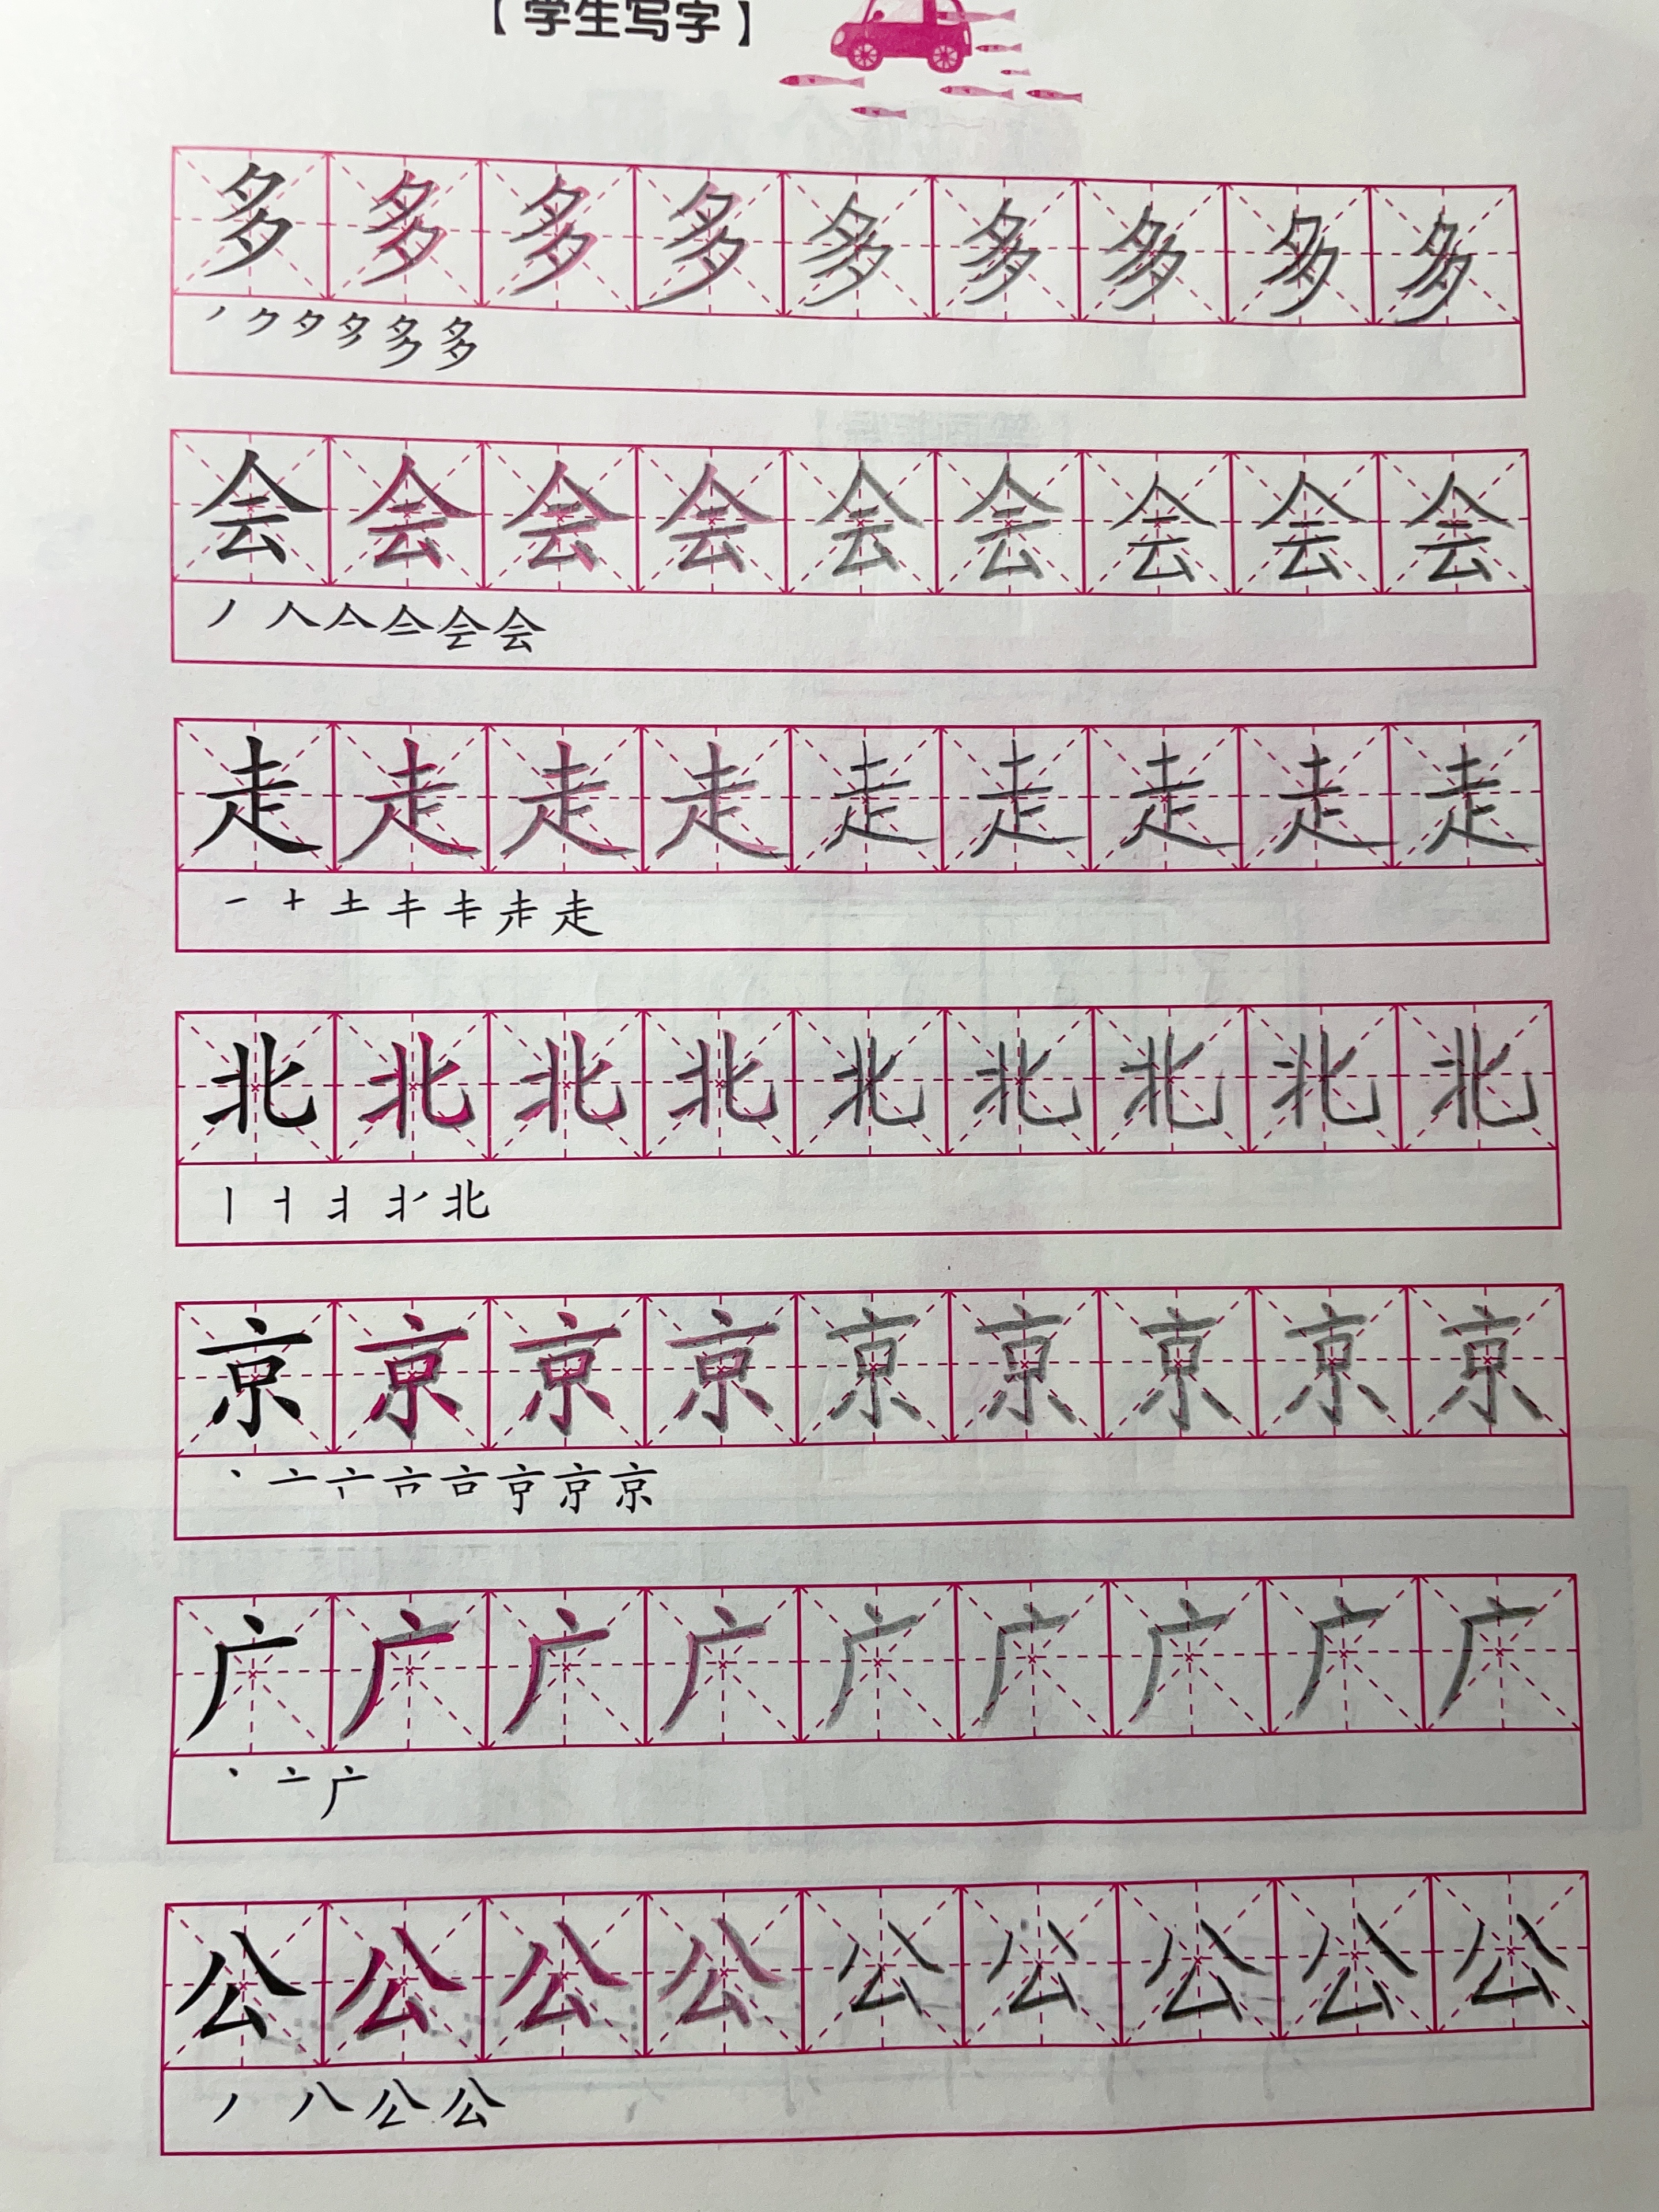 【学生写字】
多多多多多多多多多
丿ク夕多多
会会会会会会会会会
丿人亼会
走走走走走走走走走
一十土走
北北北北北北北北北
丨北
京京京京京京京京京
丶亠亠京
广广广广广广广广广
丶亠广
公公公公公公公公公
丿八公